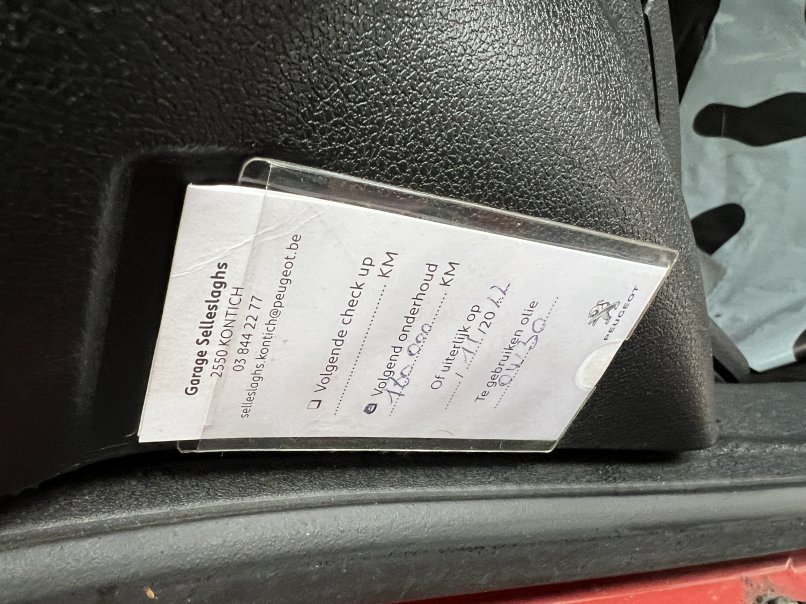 Garage Selleslaghs
2550 KONTICH
03 844 22 77
selleslaghs.kontich@peugeot.be
❏ Volgende check up
.............................. KM
Volgend onderhoud
180 000 KM
Of uiterlijk op
....... / 11 /20 22
Te gebruiken olie
0W30
PEUGEOT